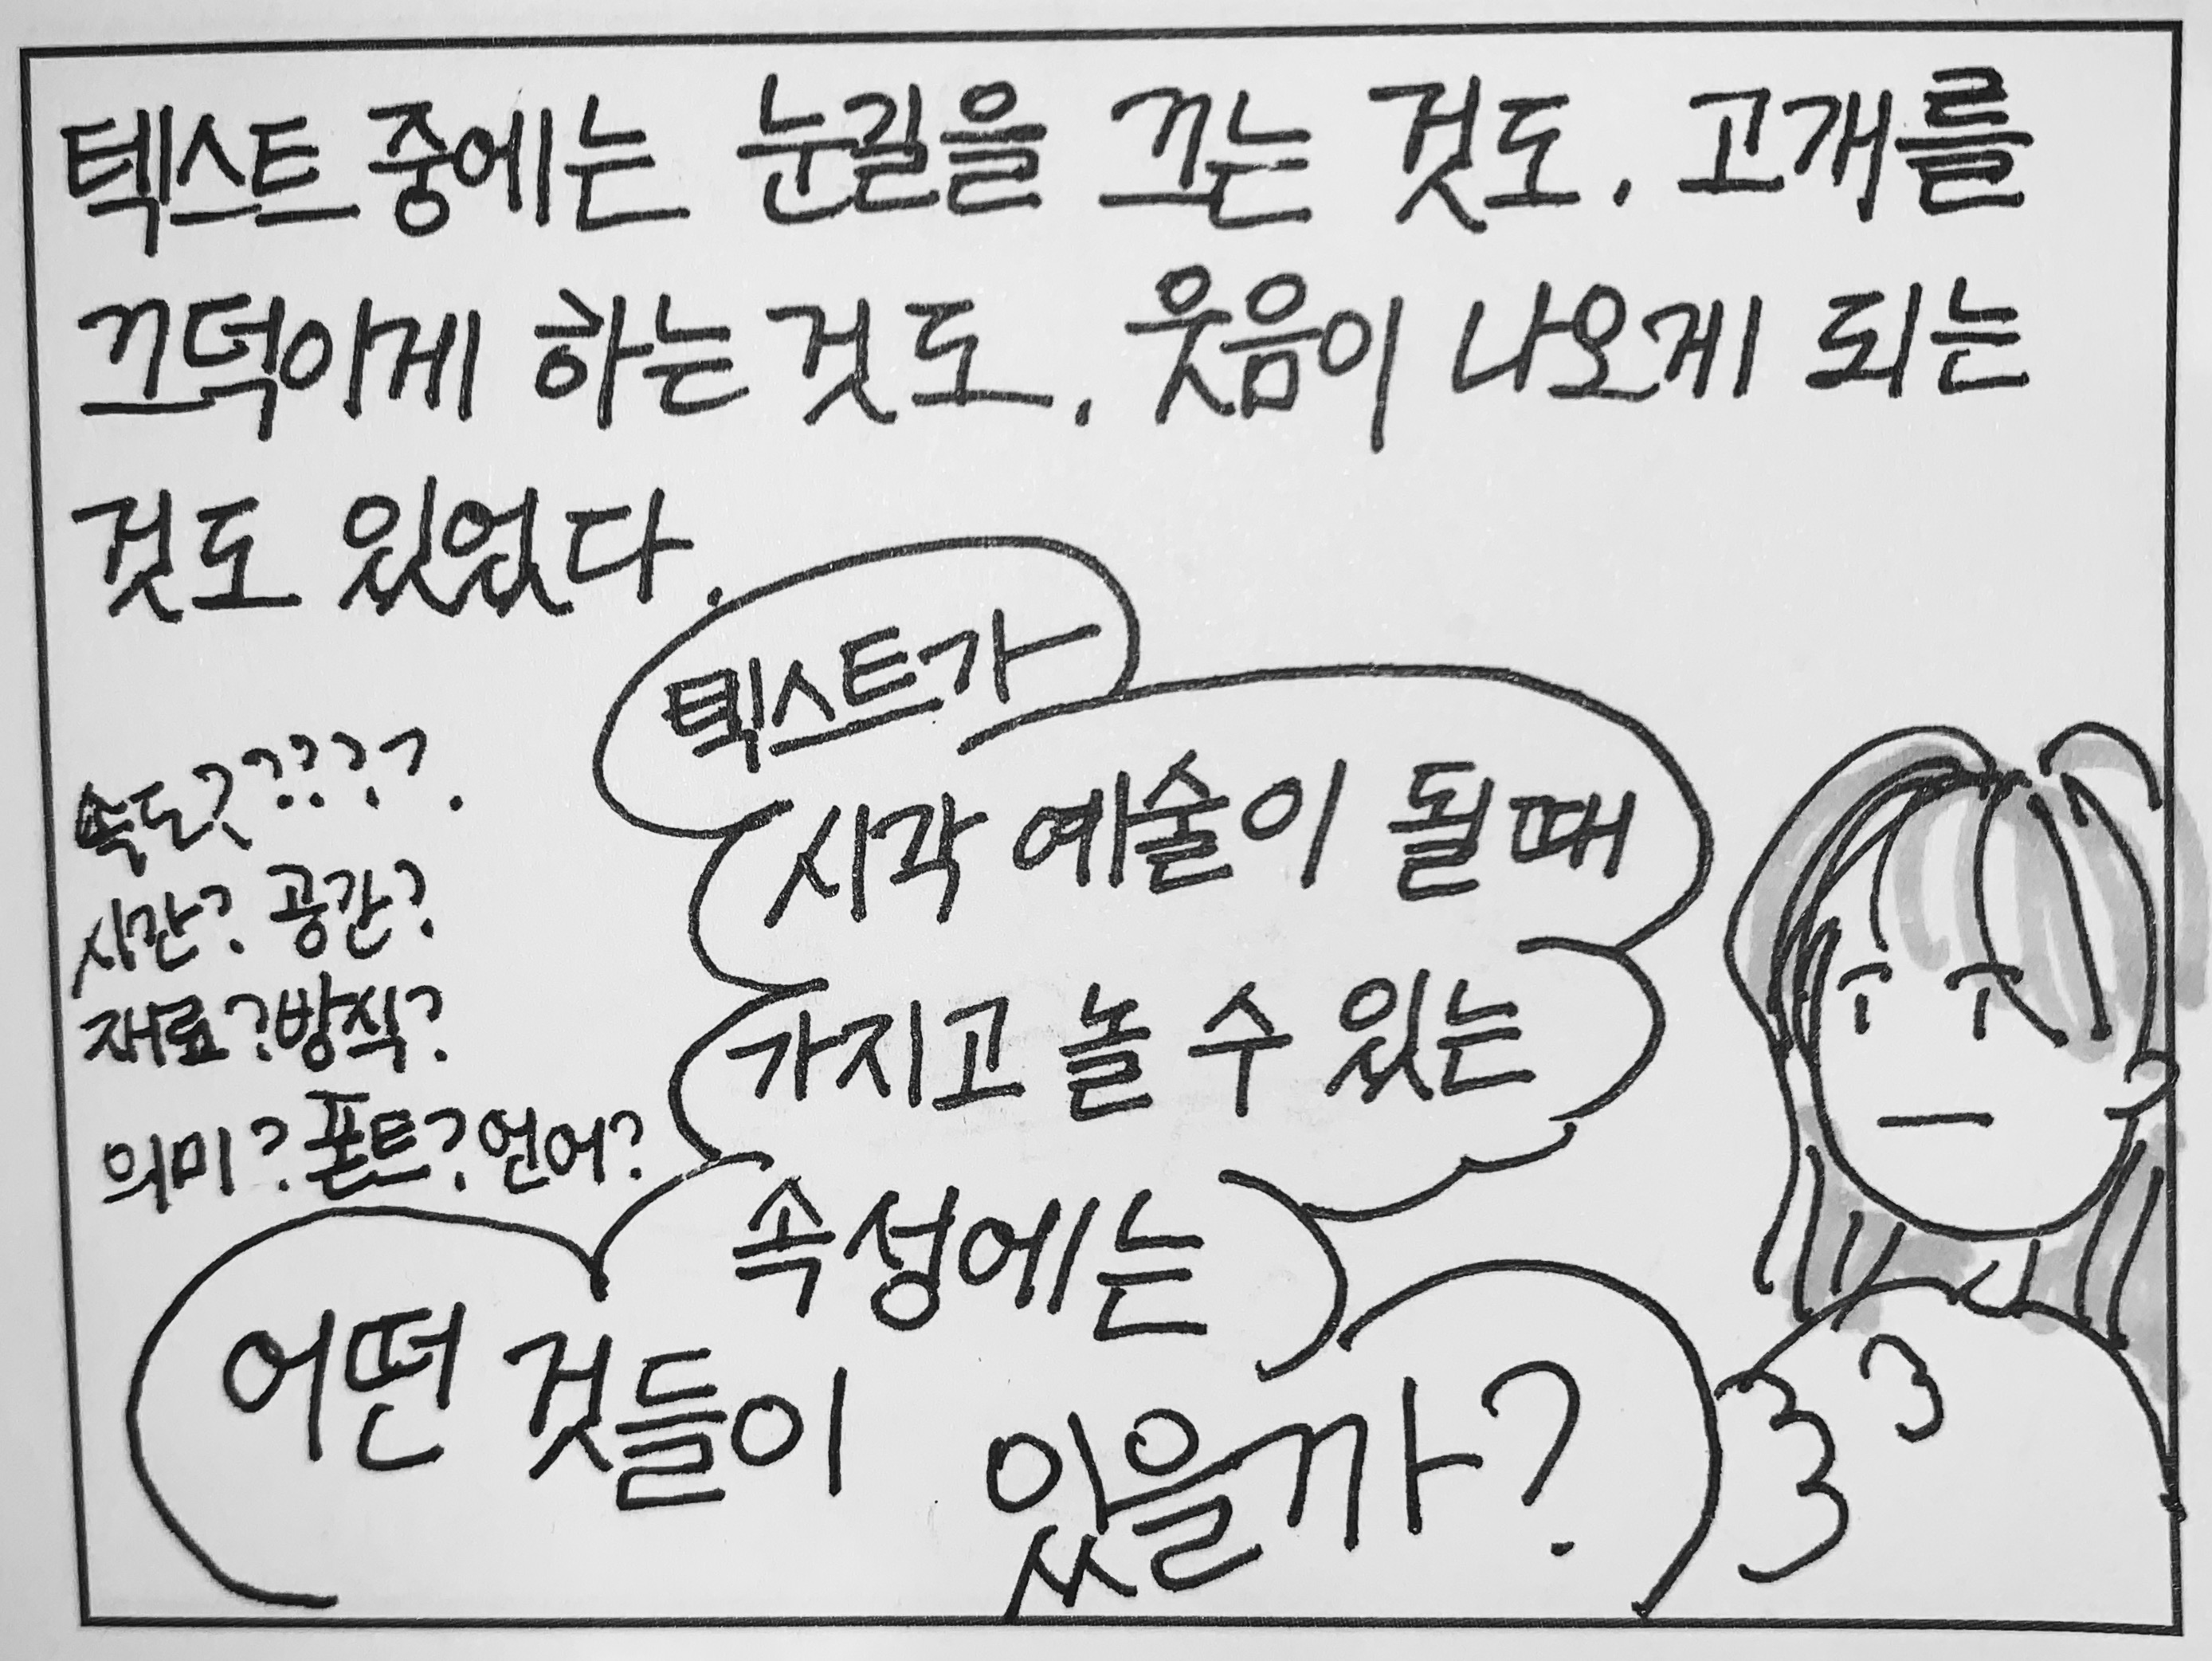 텍스트 중에는 눈길을 끄는 것도. 고개를
끄덕이게 하는 것도. 웃음이 나오게 되는
것도 있었다.
텍스트가
시각 예술이 될 때
가지고 놀 수 있는
속성에는
어떤 것들이 있을까?
속도?????.
시간? 공간?
재료? 방식?
의미? 폰트? 언어?